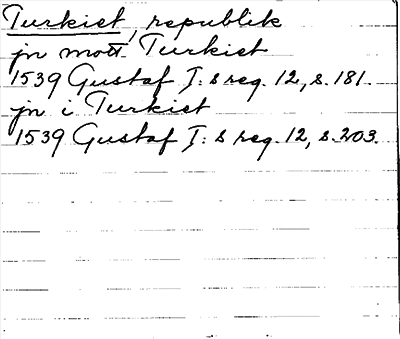 Turkiet, republik
jn mott Turkiet
1539 Gustaf I: s reg. 12, s. 181.
jn i Turkiet
1539 Gustaf I: s reg. 12, s. 203.